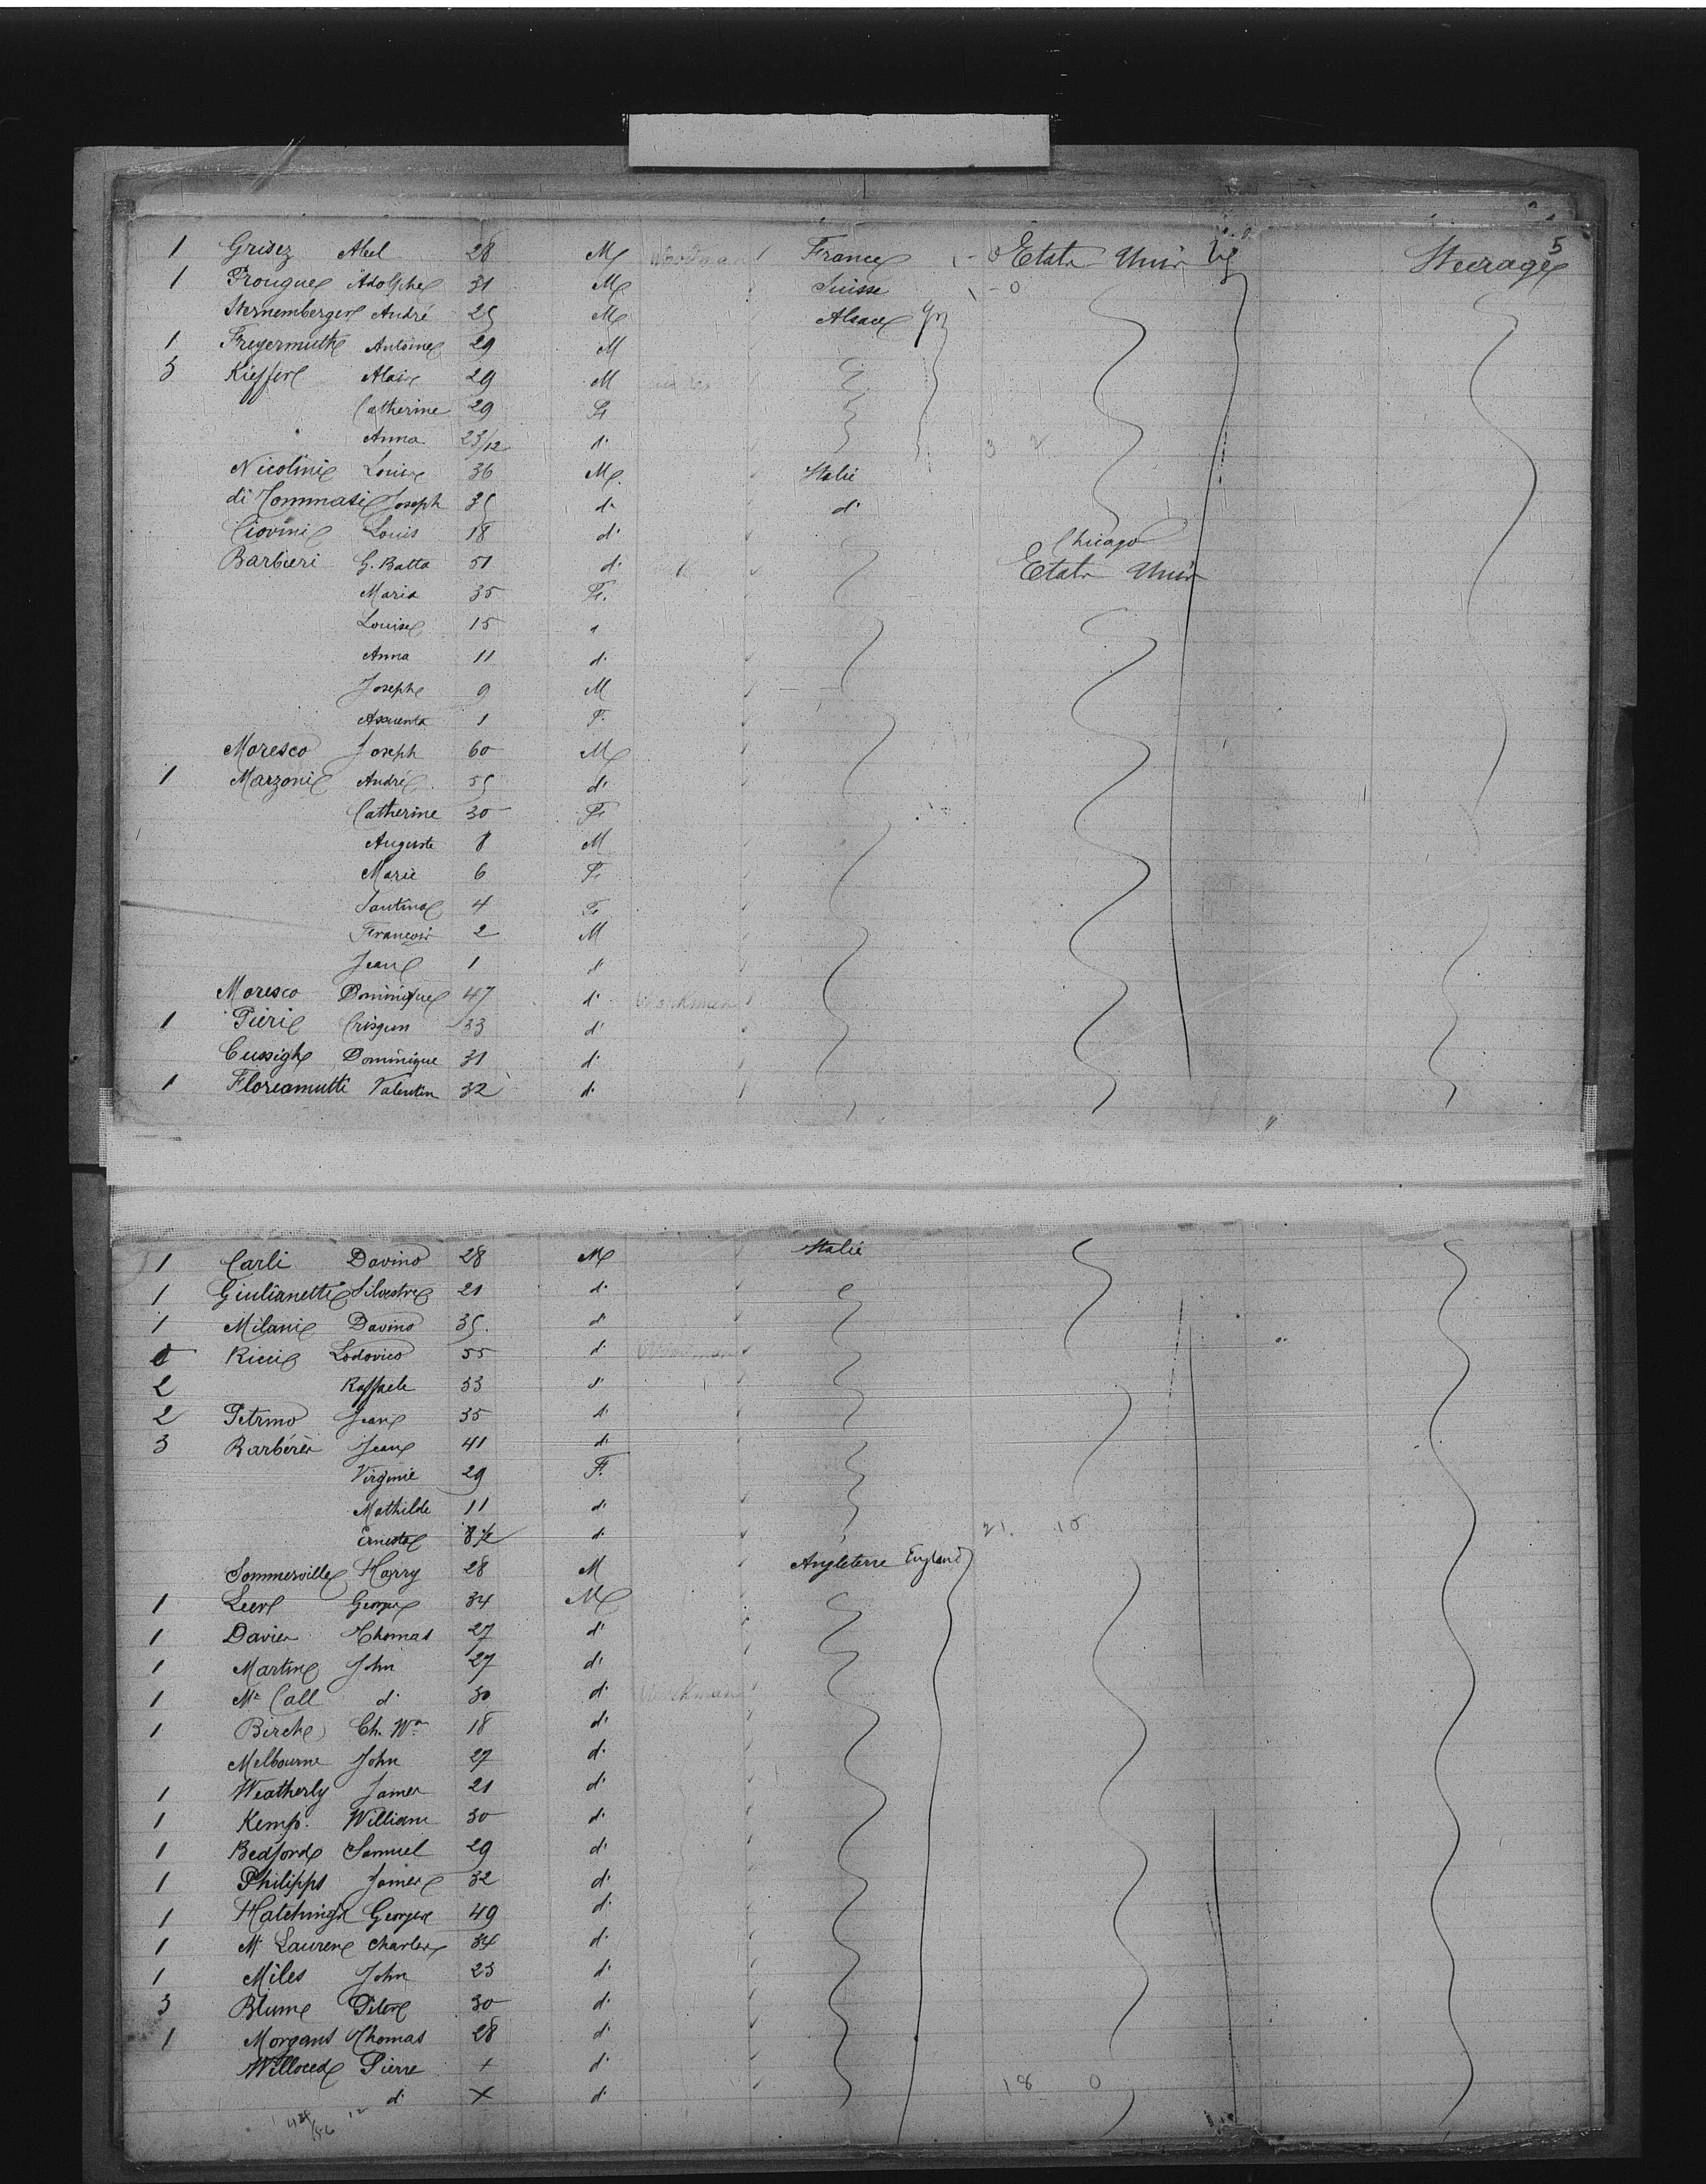 5
1 Grisez Abel 28 M Workman France 1 - 0 Etats Unis Steerage
1 Prougue Adolphe 31 M Suisse 1 - 0
Sternemberger André 25 M Alsace
1 Freyermuth Antoine 29 M
3 Kieffer Alois 29 M
Catherine 29 F
Anna 23/12 d° 3 2
Nicolini Louis 36 M Italie
di Tommasi Joseph 35 d° d°
Ciovini Louis 18 d° Chicago
Barbieri G. Batta 51 d° Etats Unis
Maria 35 F.
Louise 15
Anna 11 d°
Joseph 9 M
Assunta 1 F.
Moresco Joseph 60 M
1 Marzoni André 55 d°
Catherine 30 F
Auguste 8 M
Marie 6 F
Santina 4 F
François 2 M
Jean 1 d°
Moresco Dominique 47 d° Workman
1 Pieri Crispin 33 d°
Cussigh Dominique 31 d°
1 Floreamutti Valentin 32 d°
1 Carli Davino 28 M Italie
1 Giulianetti Silvestre 21 d°
1 Milani Davino 35 d°
Ricci Lodovico 55 d° Workman
2 Raffaele 33 d°
2 Petrino Jean 35 d°
3 Barbérès Jean 41 d°
Virginie 29 F.
Mathilde 11 d°
Ernesta 8 1/2 d° 21. 15
Sommerville Harry 28 M Angleterre England
1 George 34 M
1 Davies Thomas 27 d°
1 Martin John 27 d°
1 Mc Call d° 30 d° Workman
1 Birch Ch. Wm 18 d°
Melbourne John 27 d°
1 Weatherly James 21 d°
1 Kemp. William 30 d°
1 Bedford Samuel 29 d°
1 Philipps James 32 d°
1 Hatchings George 49 d°
1 Mc Lauren Charles 34 d°
1 Miles John 23 d°
3 Blum Peter 30 d°
1 Morgans Thomas 28 d°
Pierre + d°
d° x d° 18 0